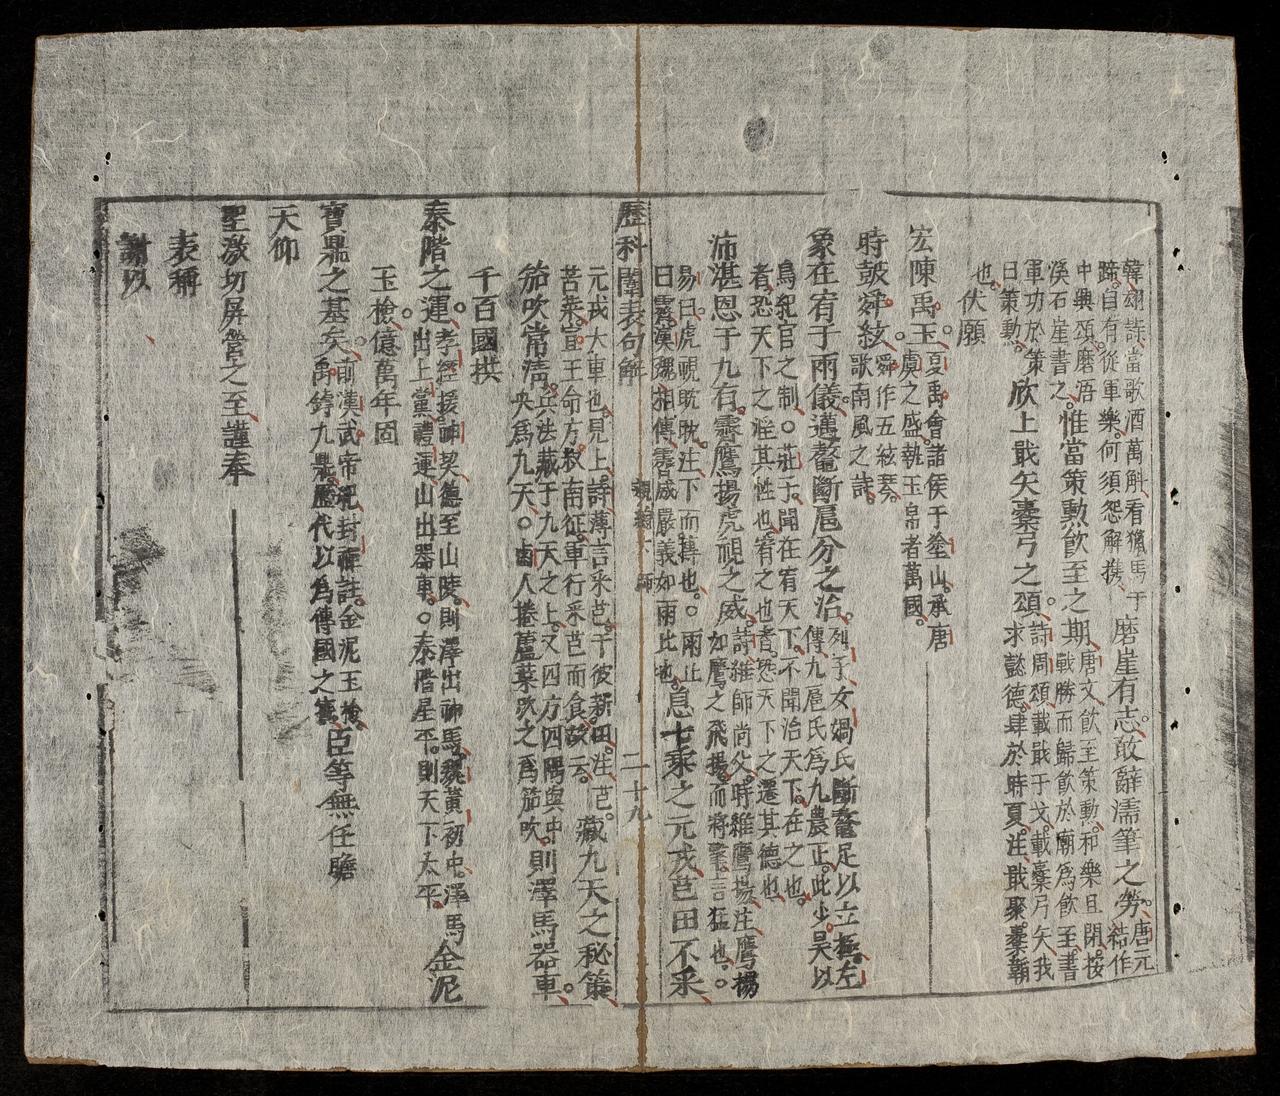 韓翃詩當歌酒萬斛看獵馬千
蹄自有從軍樂何須怨解攜
磨崖有志敢辭濡筆之勞
唐元結作
中興頌磨浯
溪石崖書之
惟當策勲飲至之期
唐文飲至策勲和樂且閑按
戰勝而歸飲於廟爲飲至書
軍功於策
曰策勳
欣上戢矢櫜弓之頌
詩周頌載戢干戈載櫜弓矢我
求懿德肆於時夏注戢聚櫜韜
也
伏願
宏陳禹玉
夏禹會諸侯于塗山承唐
虞之盛執玉帛者萬國
時鼓舜絃
舜作五絃琴
歌南風之詩
象在宥于兩儀邁鼇斷扈分之治
列子女媧氏斷鼇足以立極左
傳九扈氏爲九農正此少昊以
鳥紀官之制○莊子聞在宥天下不聞治天下在之也
者恐天下之淫其性也宥之也者恐天下之遷其德也
沛湛恩于九有霽鷹揚虎視之威
詩維師尚父時維鷹揚注鷹揚
如鷹之飛揚而將擊言猛也○
易曰虎視眈眈注下而專也○雨止
曰霽漢魏相傳霽威嚴義如雨止也
息七乘之元戎芑田不采
歷科閨表句解
二十九
元戎大車也見上詩薄言采芑于彼新田注芑
苦菜宣王命方叔南征車行采芑而食故云
藏九天之秘策
笳吹常淸
兵法藏于九天之上又四方四隅與中
央爲九天○鹵人捲蘆葉吹之爲笳吹
則澤馬器車
千百國拱
泰階之運
孝經援神契德至山陵則澤出神馬魏黃初中澤馬
出上黨禮運山出器車○泰階星平則天下太平
金泥
玉檢億萬年固
寶鼎之基矣
前漢武帝紀封禪註金泥玉檢
禹鑄九鼎歷代以為傳國之寶
臣等無任瞻
天仰
聖激切屏營之至謹奉
表稱
謝以